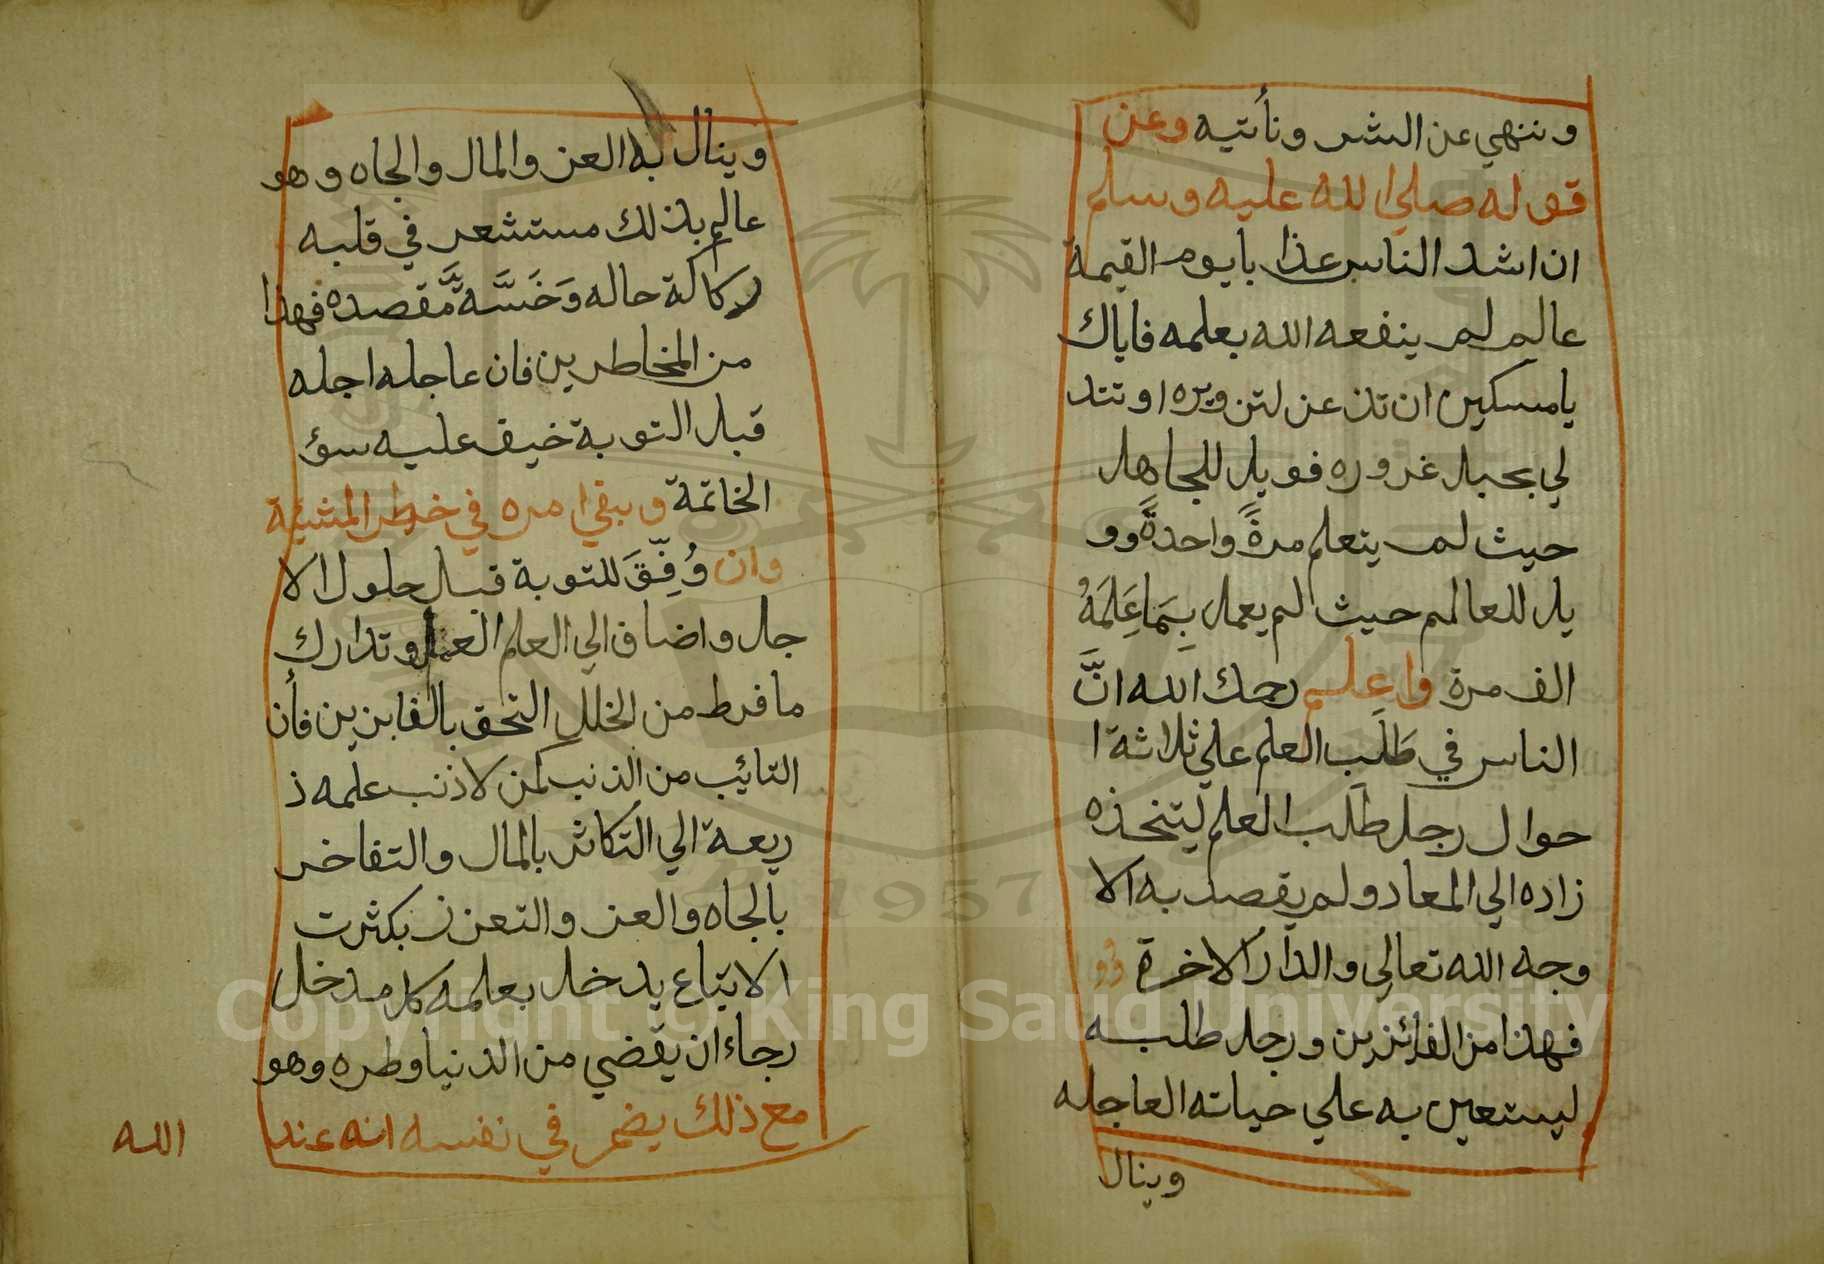 وننهي عن الشر ونأتيه وعن
قوله صلي الله عليه وسلم
ان اشد الناس عذا بايوم القيمة
عالم لم ينفعه الله بعلمه فاياك
يا مسكين ان تذ عن لتزويره او تتد
لي بحبل غروره فويل للجاهل
حيث لم يتعلم مرةً واحدةً وو
يل للعالم حيث لم يعمل بِمَاعَلِمَهُ
الف مرة واعلم رحمك الله انَّ
الناس في طَلَب العلم علي ثلاثة ا
حوال رجل طلب العلم ليتخذه
زاده الي المعاد ولم يقصد به الا
وجه الله تعالي والدار الاخرة
فهذا من الفائزين ورجل طلبه
ليستعين به علي حياته العاجله
وينال
وينال به العز والمال والجاه وهو
عالم بذلك مستشعر في قلبه
ركاكة حاله وَخَسَّةَ مَّقصده فهذا
من المخاطرين فان عاجله اجله
قبل التوبة خيف عليه سؤ
الخاتمة وبقي امره في خطر المشيئة
وان وُفِّقَ للتوبة قبل حلول الا
جل واضاف الي العلم العمل وتدارك
ما فرط من الخلل التحق بالفايزين فأن
التائيب من الذنب كمن لا ذنب علمه ذ
ريعة الي التكاثر بالمال والتفاخر
بالجاه والعز والتعزز بكثرت
الاتباع يدخل بعلمه كل مدخل
رجاء ان يقضي من الدنيا وطره وهو
مع ذلك يضمر في نفسه انه عند
الله
Copyright © King Saud University
1957